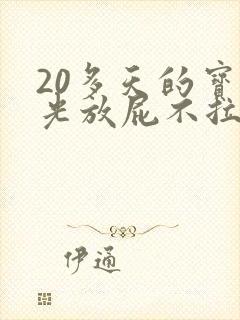 20多天的宝
光放屁不拉
伊通